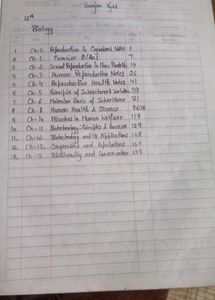 Gunjan Vyas
12th
Biology
1 Ch-1. Reproduction in Organisms Notes 1
2 Ch-1. Exercise Q/Ans 7
3 Ch-2. Sexual Reproduction in Flow. Plants No. 14
4 Ch-3 Human Reproduction Notes 26
5 Ch-4 Reproductive Health Notes 41
6 Ch-5 Principle of Inheritance & Variation
7 Ch-6 Molecular Basis of Inheritance 71
8 Ch-8 Human Health & Disease
9 Ch-10 Microbes in Human Welfare 119
10 Ch-11 Biotechnology: Principles & Processes 129
11 Ch-12 Biotechnology and its Applications
12 Ch-13. Organisms and Populations
13 Ch-15. Biodiversity and Conservation